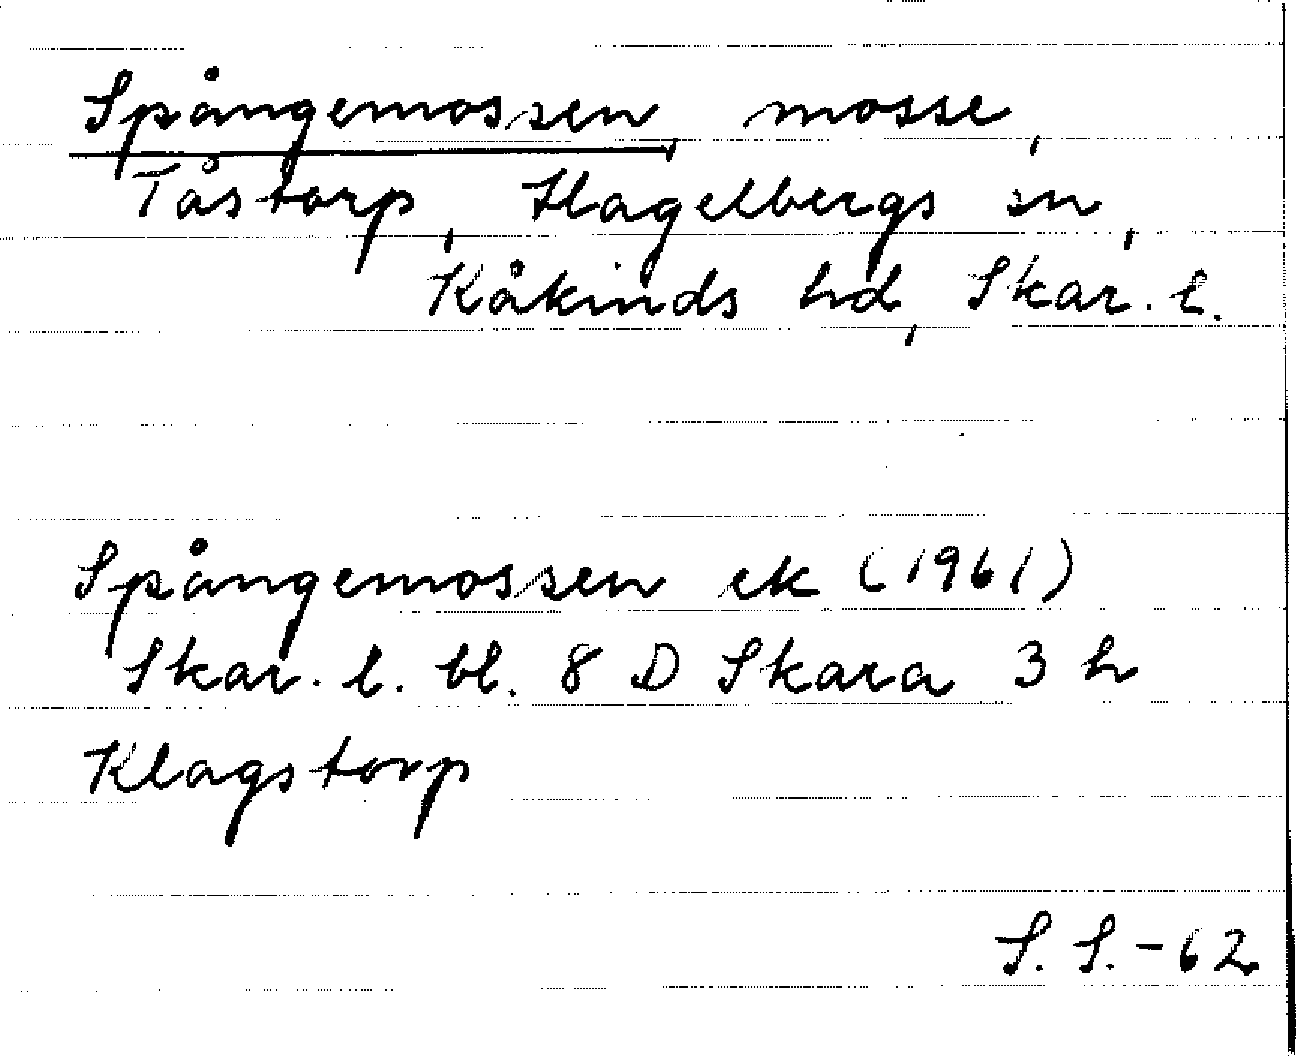 Spångemossen, mosse,
Tåstorp, Hagelbergs sn,
Kåkinds hd, Skar. l.
Spångemossen ek (1961)
Skar. l. bl. 8 D Skara 3 h
Klagstorp
S. S. - 62